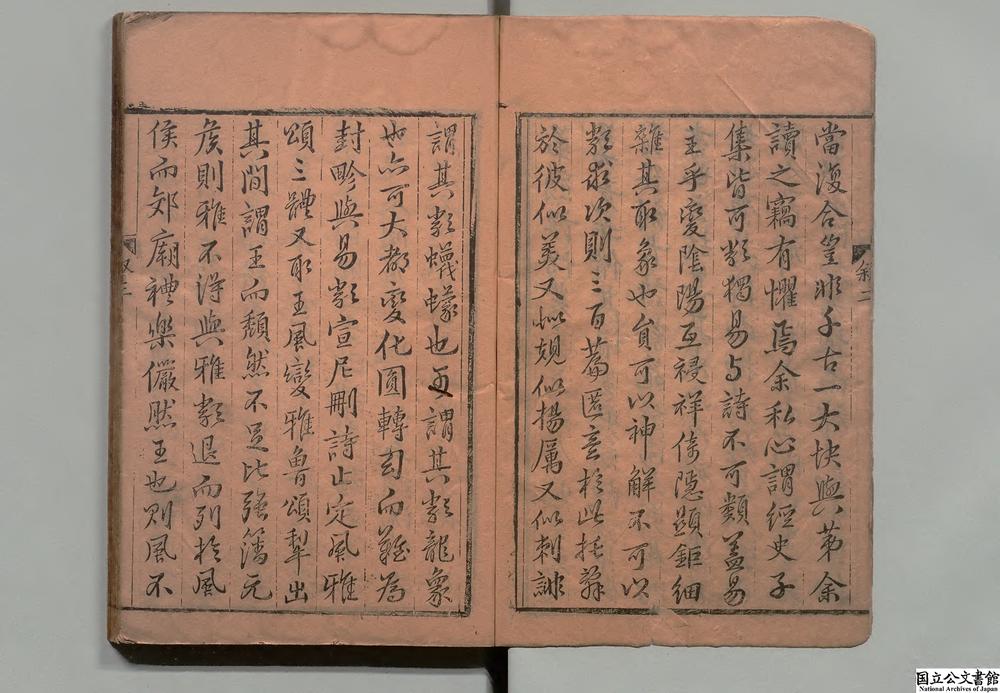 當復合豈非千古一大快與第余
讀之竊有懼焉余私心謂經史子
集皆可類獨易与詩不可類蓋易
主乎變陰陽互禪祥倚隱顯鉅細
雜其取象也貟可以神解不可以
類求次則三百篇匿意於此托辭
於彼似美又似規似揚厲又似刺誹
叙二
謂其類蠛蠓也更謂其類龍象
也亦可大都變化圓轉匈而難為
封畛與易類宣尼刪詩止定風雅
頌三體又取王風變雅魯頌犁出
其間謂王而頹然不足比強藩元
矦則雅不得與雅類退而列於風
侯而郊廟禮樂儼然王也則風不
叙三
国立公文書館
National Archives of Japan